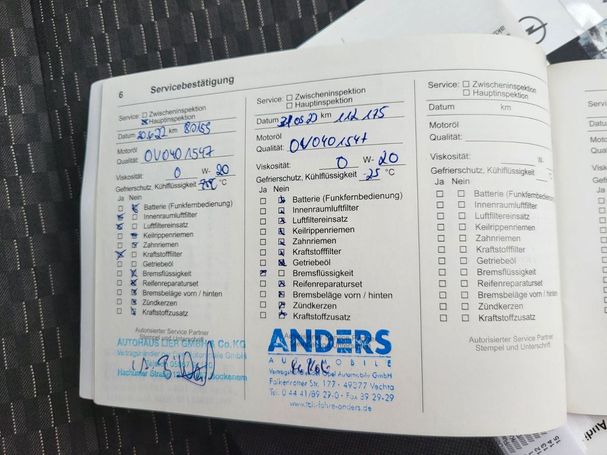 6 Servicebestätigung
Service: Zwischeninspektion
Hauptinspektion
Datum 20.6.22 km 80155
Motoröl
Qualität: OV0401547
Viskosität: 0 W- 20
Gefrierschutz, Kühlflüssigkeit °C
Ja Nein
Batterie (Funkfernbedienung)
Innenraumluftfilter
Luftfiltereinsatz
Keilrippenriemen
Zahnriemen
Kraftstofffilter
Getriebeöl
Bremsflüssigkeit
Reifenreparaturset
Bremsbeläge vorn / hinten
Zündkerzen
Kraftstoffzusatz
Autorisierter Service Partner
Stempel und Unterschrift
AUTOHAUS
Service: Zwischeninspektion
Hauptinspektion
Datum km 112 175
Motoröl
Qualität: OV0401547
Viskosität: 0 W- 20
Gefrierschutz, Kühlflüssigkeit -25 °C
Ja Nein
Batterie (Funkfernbedienung)
Innenraumluftfilter
Luftfiltereinsatz
Keilrippenriemen
Zahnriemen
Kraftstofffilter
Getriebeöl
Bremsflüssigkeit
Reifenreparaturset
Bremsbeläge vorn / hinten
Zündkerzen
Kraftstoffzusatz
ANDERS
AUTOMOBILE
Opel Automobile GmbH
Falkenrotter Str. 177 - 49377 Vechta
Tel. 0 44 41/89 29-0 - Fax 89 29-29
Service: Zwischeninspektion
Hauptinspektion
Datum km
Motoröl
Qualität:
Viskosität: W-
Gefrierschutz, Kühlflüssigkeit
Ja Nein
Batterie (Funkfernbedienung)
Innenraumluftfilter
Luftfiltereinsatz
Keilrippenriemen
Zahnriemen
Kraftstofffilter
Getriebeöl
Bremsflüssigkeit
Reifenreparaturset
Bremsbeläge vorn / hinten
Zündkerzen
Kraftstoffzusatz
Autorisierter Service Partner
Stempel und Unterschrift